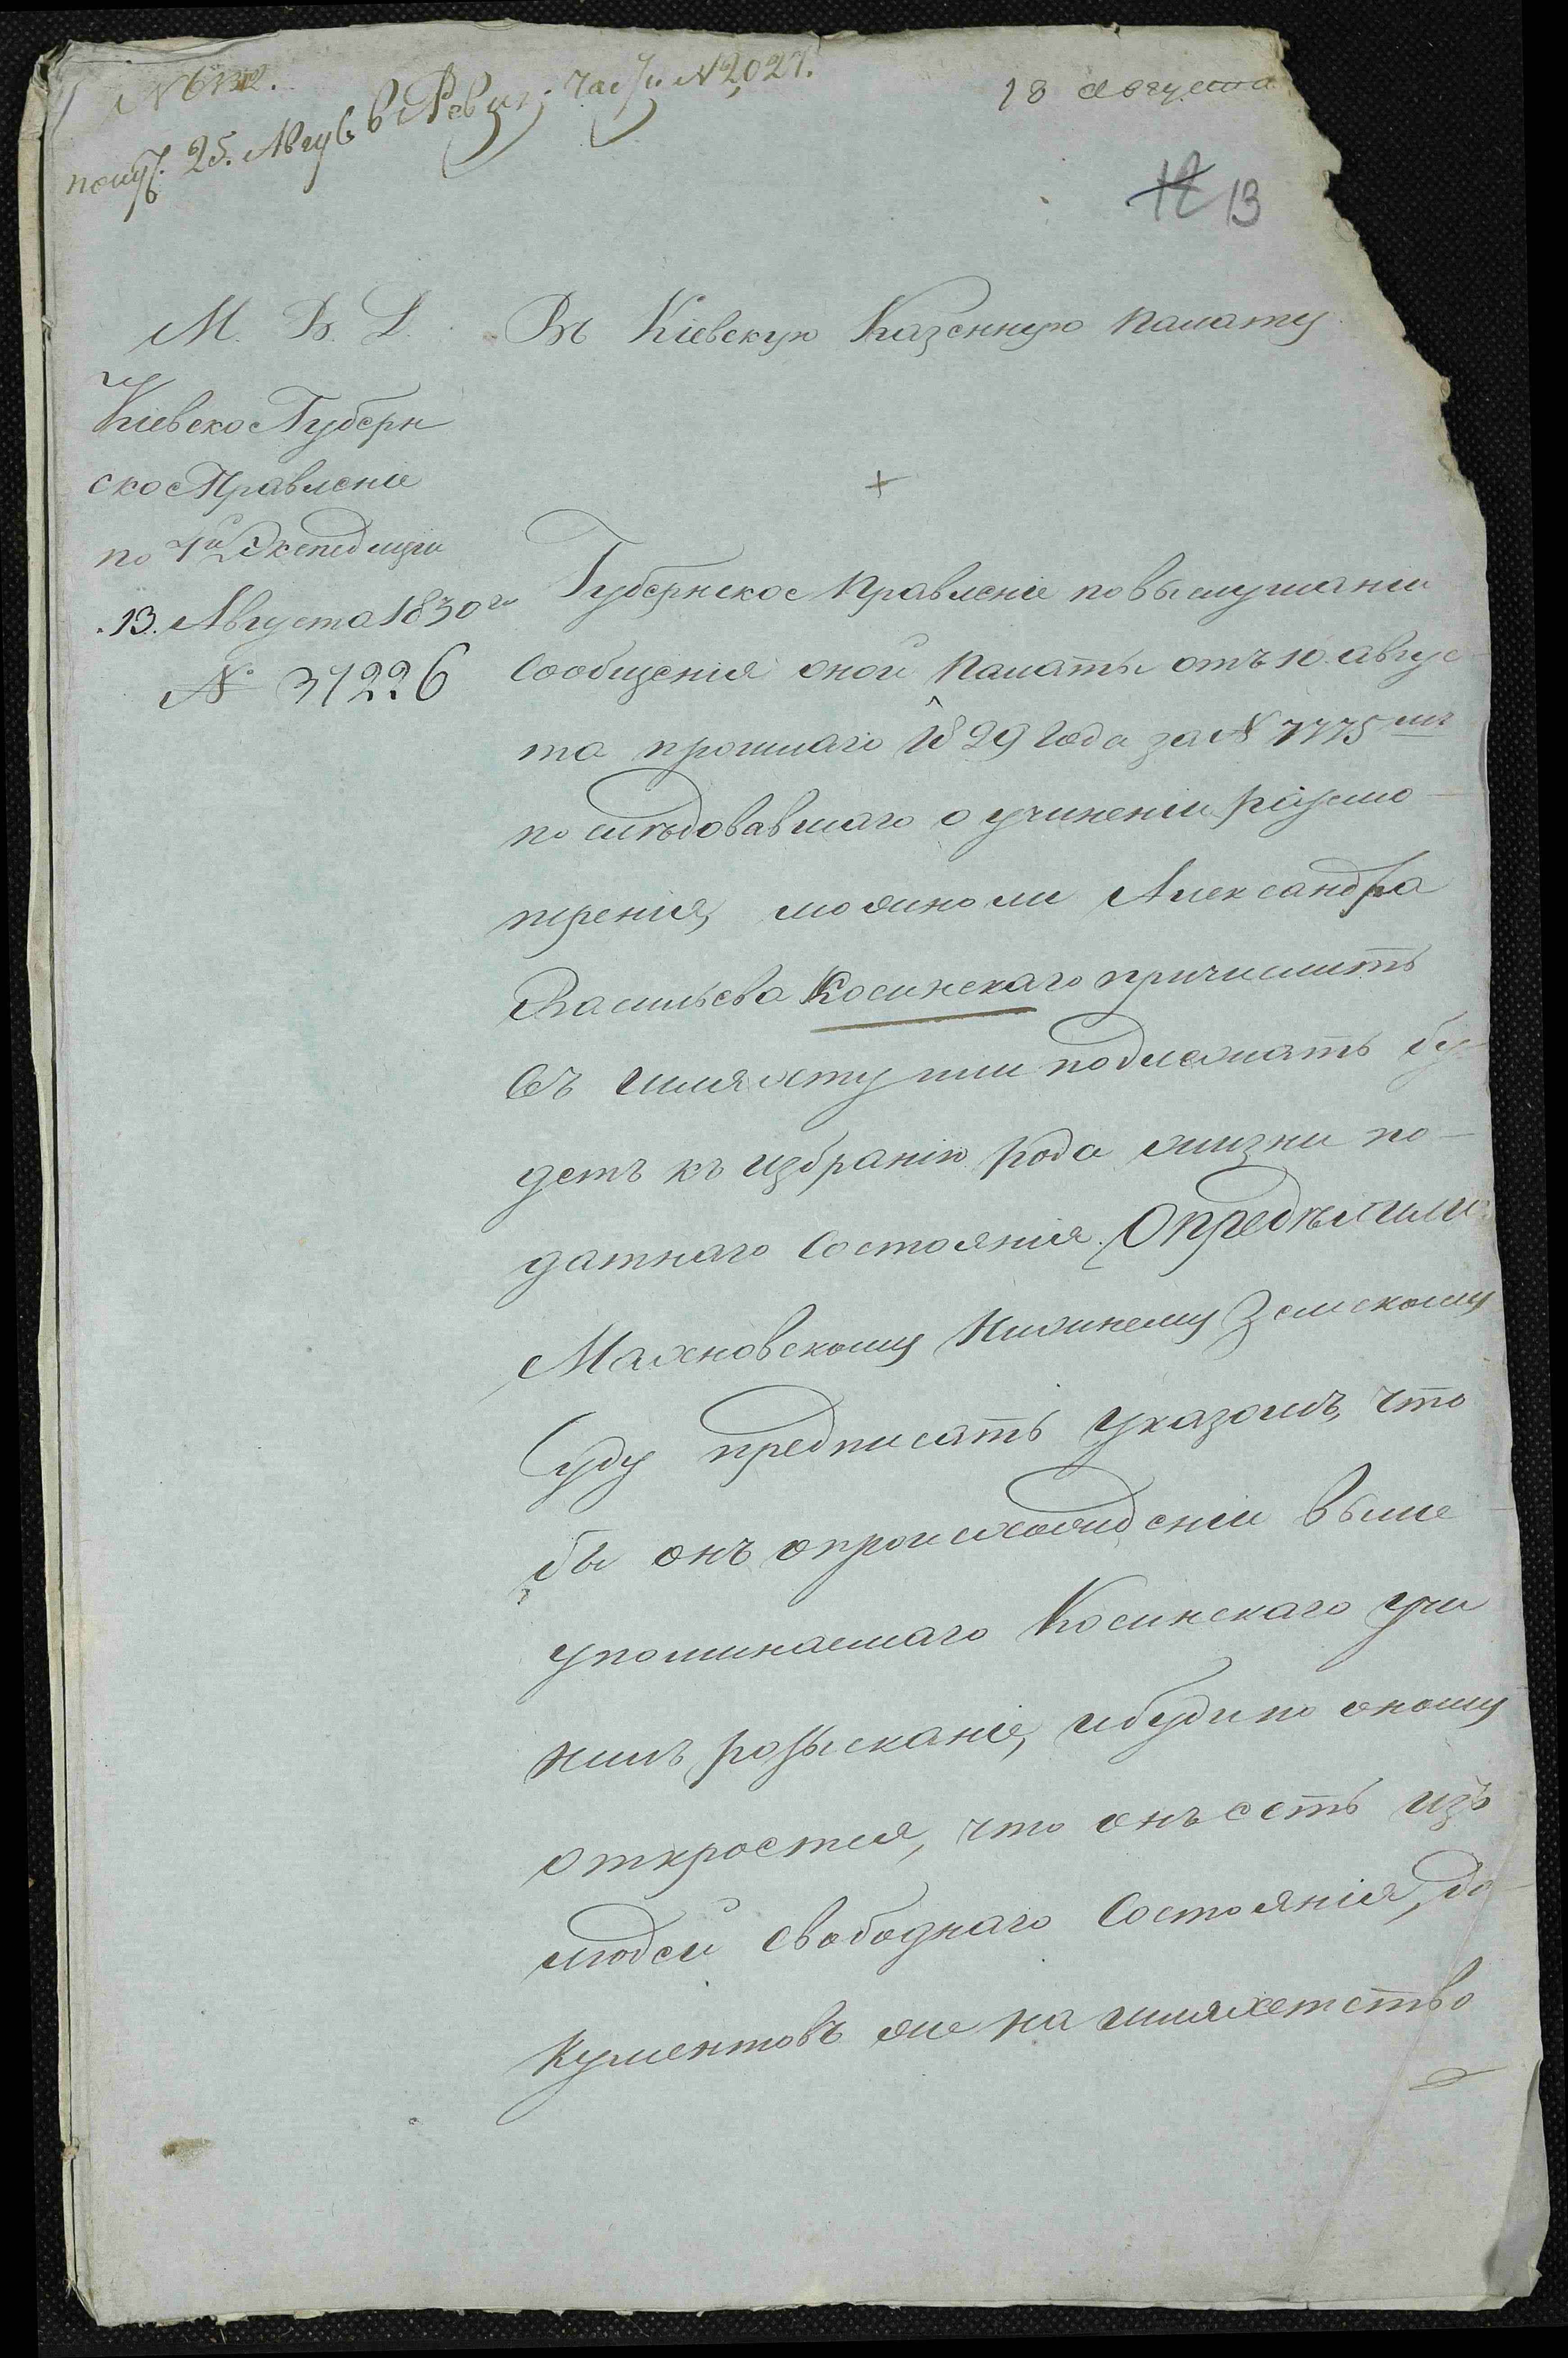 получ. 25. Авгус. в Ревиз: части N 2,027.
18 августа
12 13
М. В. Д.
Кіевско Губерн
ское Правленіе
по 1й Экспедиціи
13. Августа 1830го
№ 31226
Въ Кіевскую Казенную Палату
Губернское Правленіе по выслушаніи
Сообщенія оной Палаты отъ 10 авгус
та прошлаго 1829 года за № 7775мъ
послѣдовавшаго о учиненіи разсмо-
тренія, можно ли Александра
Васильева Косинскаго причислить
въ шляхту или подлежать бу-
детъ къ избранію рода жизни по-
датнаго Состоянія. Опредѣлили
Махновскому Нижнему Земскому
Суду предписать указомъ, что
бы онъ о происхожденіи выше
упоминаемаго Косинскаго учи
нилъ розысканіе, и буди по оному
откроется, что онъ есть изъ
людей свободнаго Состоянія, до-
кументовъ же на шляхетство